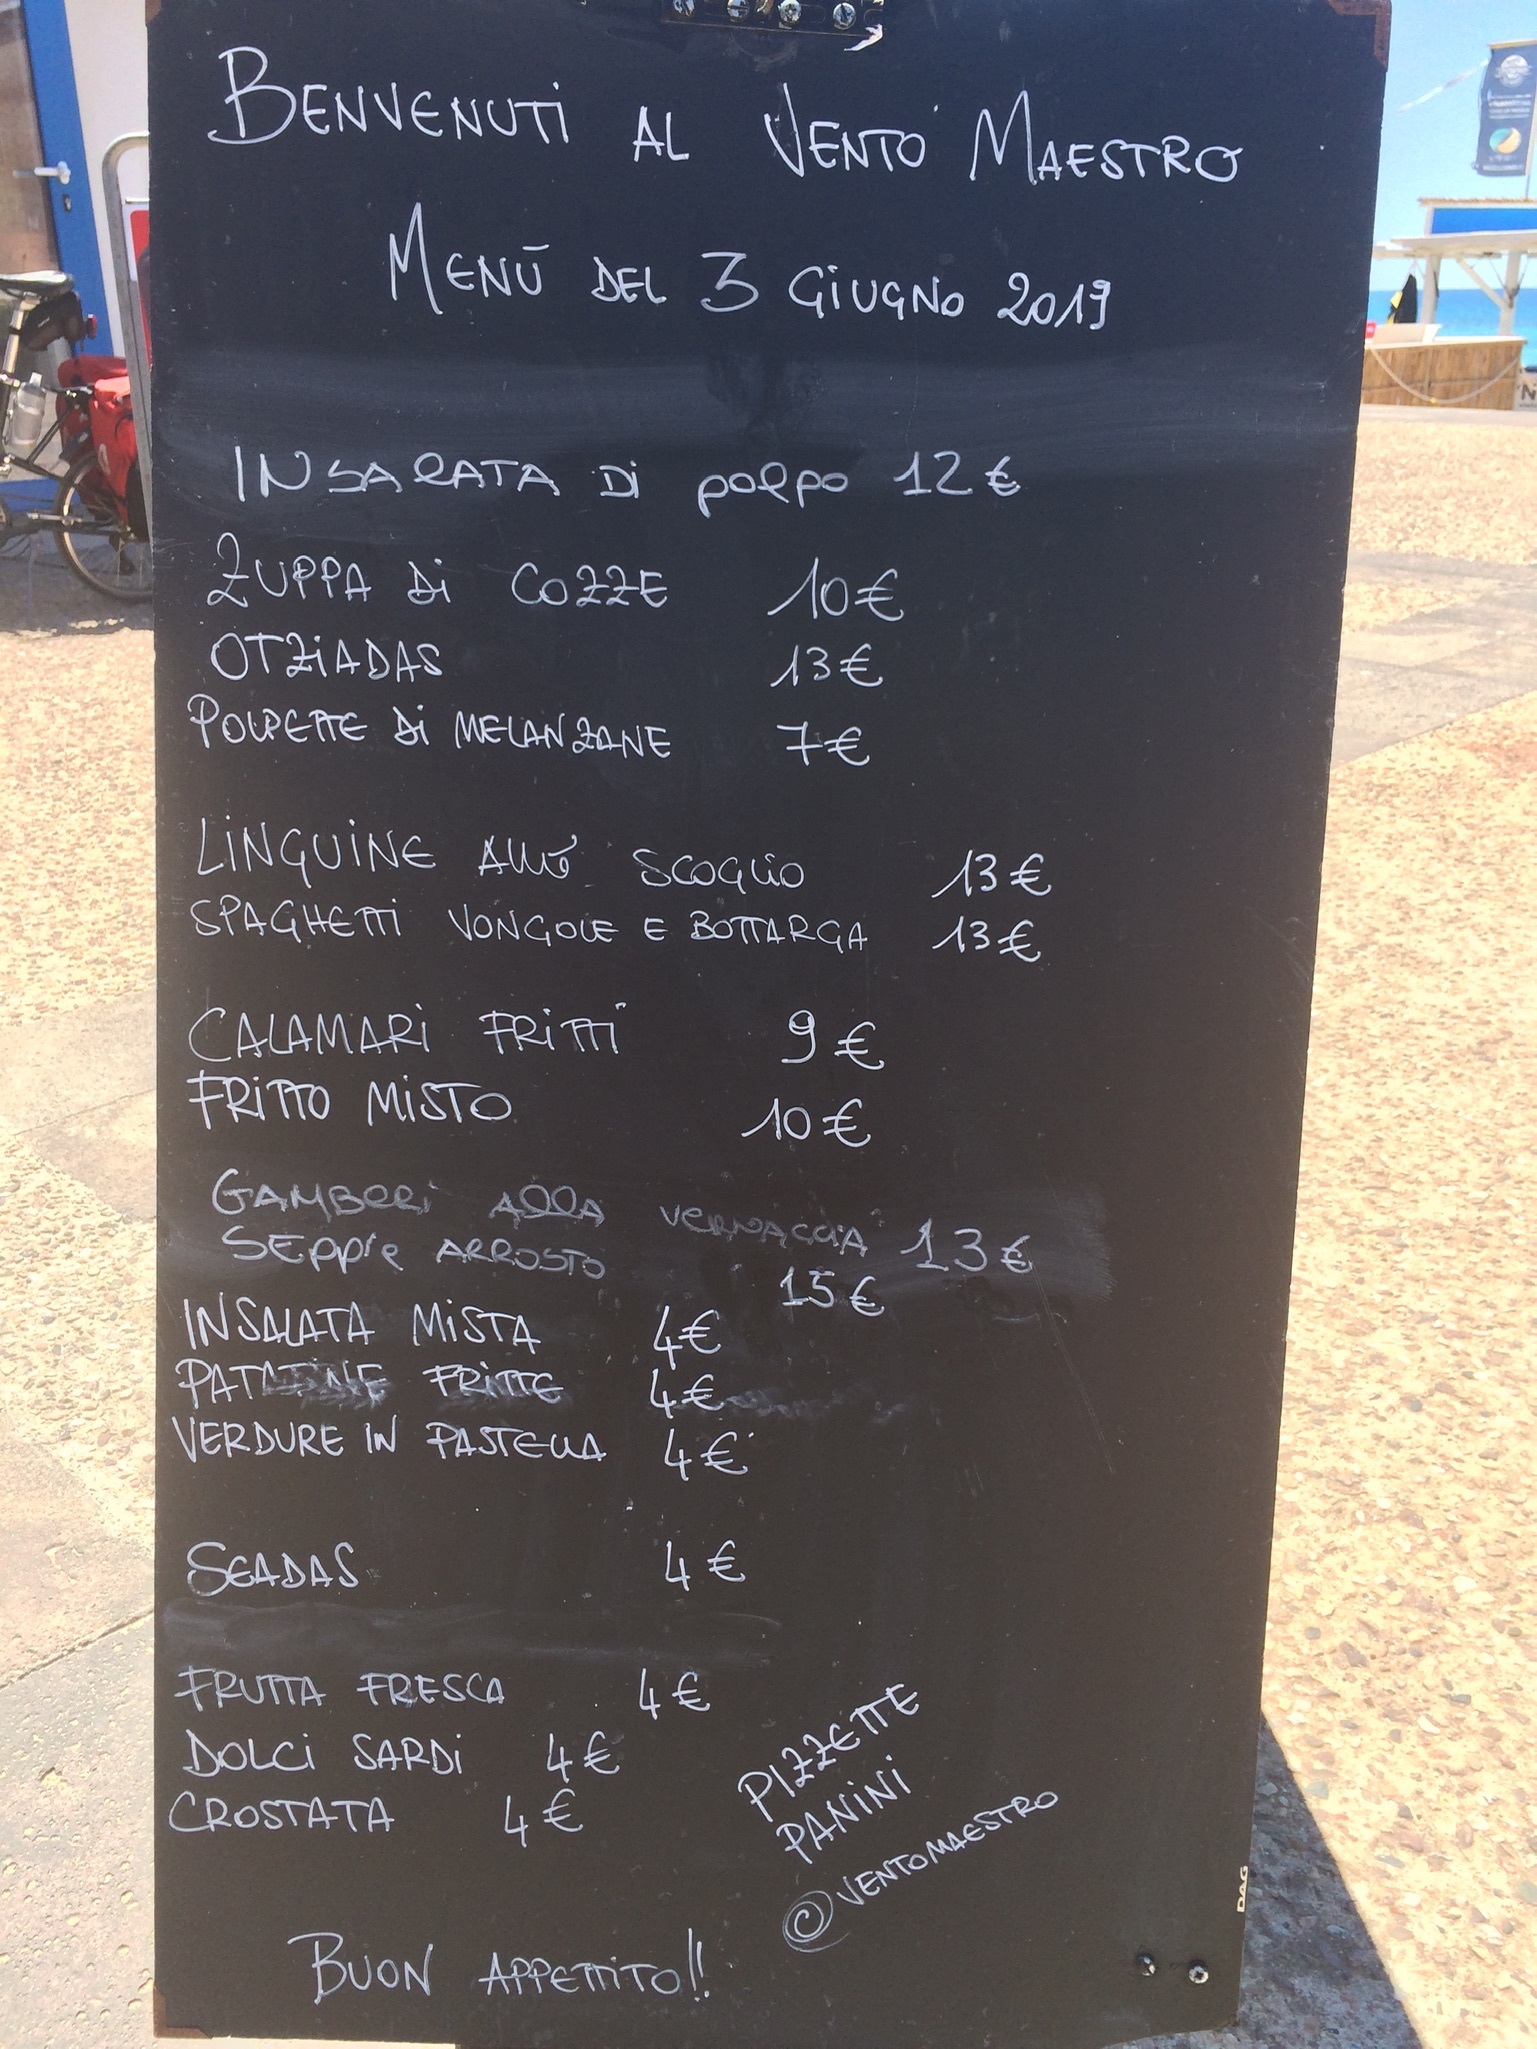 BENVENUTI AL VENTO MAESTRO
MENÙ DEL 3 GIUGNO 2019
INSALATA Di polpo 12 €
ZUPPA Di COZZE 10€
OTZiADAS 13€
POLPETTE Di MELANZANE 7€
LiNGUiNE ALLO SCOGLiO 13€
SPAGHETTi VONGOLE E BOTTARGA 13€
CALAMARi FRiTTi 9€
FRiTTO MiSTO 10€
GAMBERi ALLA VERNACCiA 13€
SEPPiE ARROSTO 15€
INSALATA MiSTA 4€
PATATINE FRiTTE 4€
VERDURE IN PASTELLA 4€
SEADAS 4€
FRUTTA FRESCA 4€
DOLCi SARDi 4€
CROSTATA 4€
PIZZETTE
PANINI
@VENTOMAESTRO
DAG
BUON APPETTITO!!